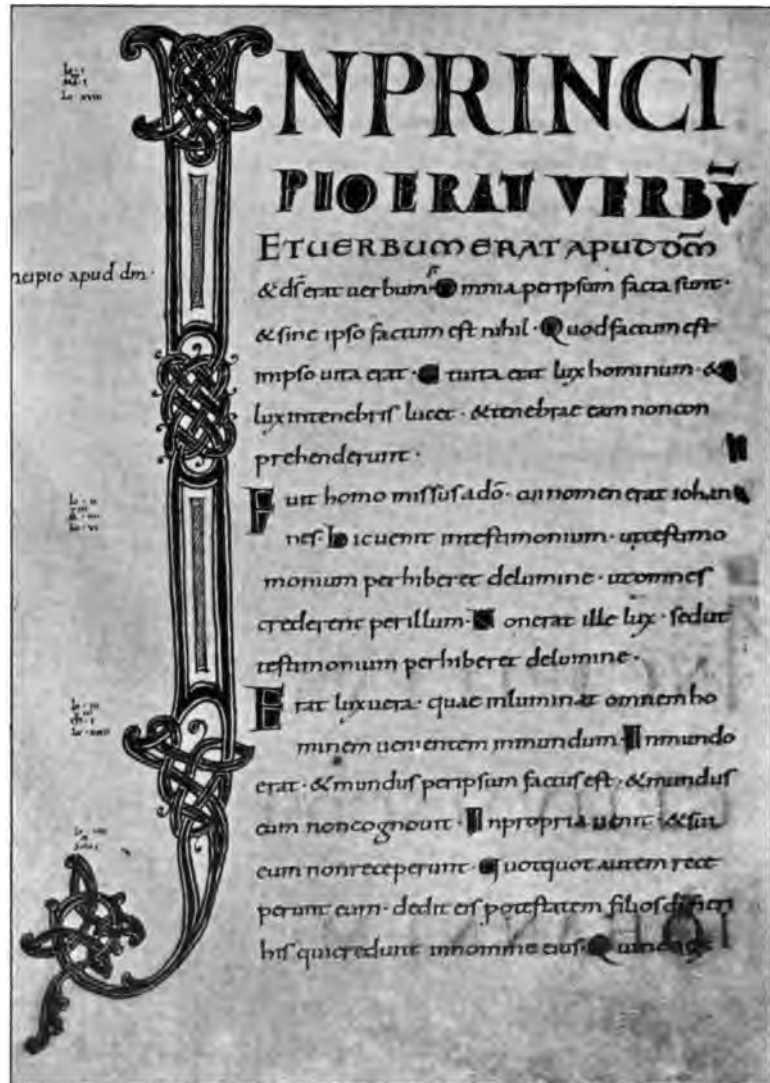 INPRINCI
PIO ERAT VERBV̄
ET UERBUM ERAT APUD DM̄
ncipio apud dm̄ ·
& ds̄ erat uerbum · Omnia peripsum facta sunt ·
& sine ipso factum est nihil · Quod factum est
inipso uita erat · Et uita erat lux hominum · &
lux intenebris lucet · & tenebrae eam noncon
prehenderunt ·
Fuit homo missus adō · cui nomen erat iohan
nes · hic uenit intestimonium · uttestimo
monium perhiberet delumine · utomnes
crederent perillum · Non erat ille lux · sedut
testimonium perhiberet delumine ·
Erat lux uera · quae inluminat omnem ho
minem uenientem inmundum · Inmundo
erat · & mundus peripsum factus est · & mundus
eum noncognouit · Inpropria uenit · & sui
eum nonreceperunt · Quotquot autem rece
perunt eum · dedit eis potestatem filios di fieri
his quicredunt innomine eius · Qui